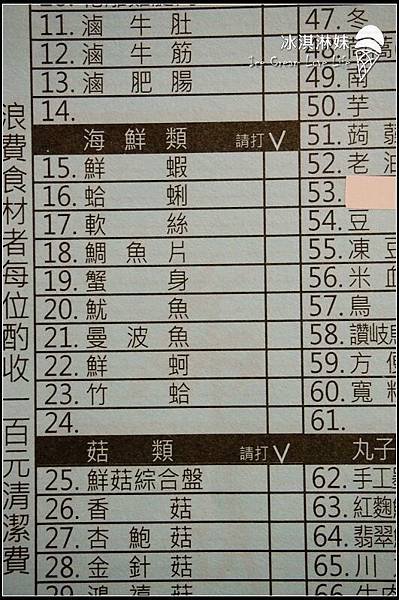 浪費食材者每位酌收一百元清潔費
11. 滷牛肚
12. 滷牛筋
13. 滷肥腸
14.
海鮮類 請打V
15. 鮮蝦
16. 蛤蜊
17. 軟絲
18. 鯛魚片
19. 蟹身
20. 魷魚
21. 曼波魚
22. 鮮蚵
23. 竹蛤
24.
菇類 請打V
25. 鮮菇綜合盤
26. 香菇
27. 杏鮑菇
28. 金針菇
29. 鴻禧菇
47. 冬
49. 南
50. 芋
51. 蒟蒻
52. 老油
53.
54. 豆
55. 凍豆
56. 米血
57. 鳥
58. 讚岐烏
59. 方便
60. 寬粉
61.
丸子
62. 手工
63. 紅麴
64. 翡翠
65. 川
66. 牛肉
冰淇淋妹
Ice Cream Love Life